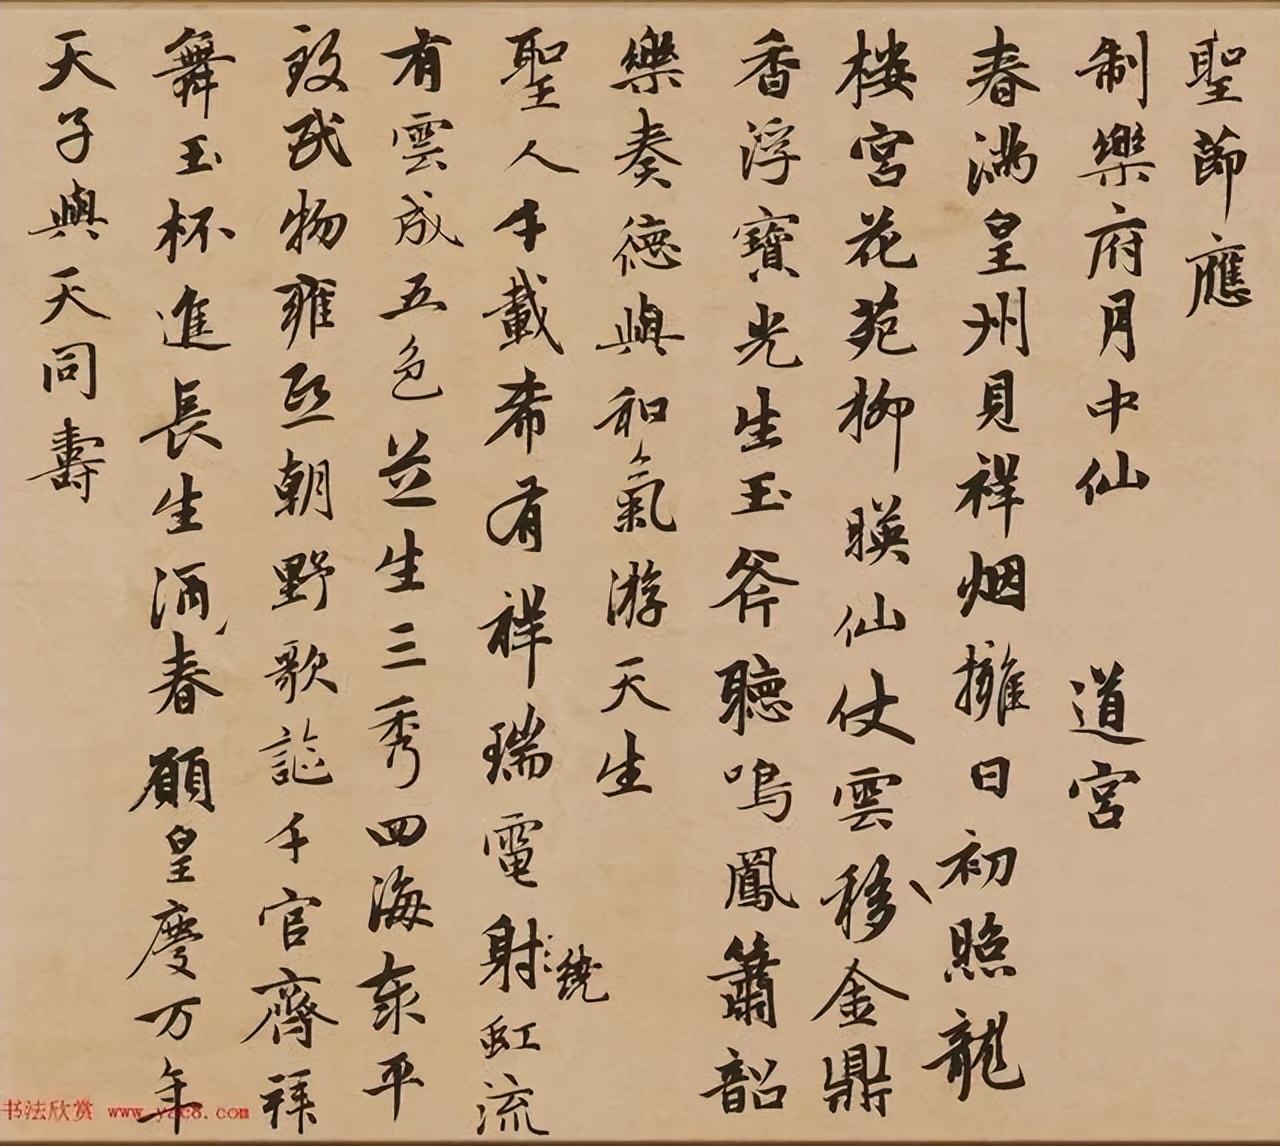 聖節應
制樂府月中仙 道宮
春滿皇州見祥烟擁日初照龍
楼宮花苑柳暎仙仗雲移金鼎
香浮寶光生玉斧聽鳴鳳簫韶
樂奏德與和氣游天生
聖人千載希有祥瑞電射虹流
繞
有雲成五色並生三秀四海泰平
致民物雍熙朝野歌謳千官齊拜
舞玉杯進長生酒春願皇慶万年
天子與天同壽
书法欣赏 www.yac8.com